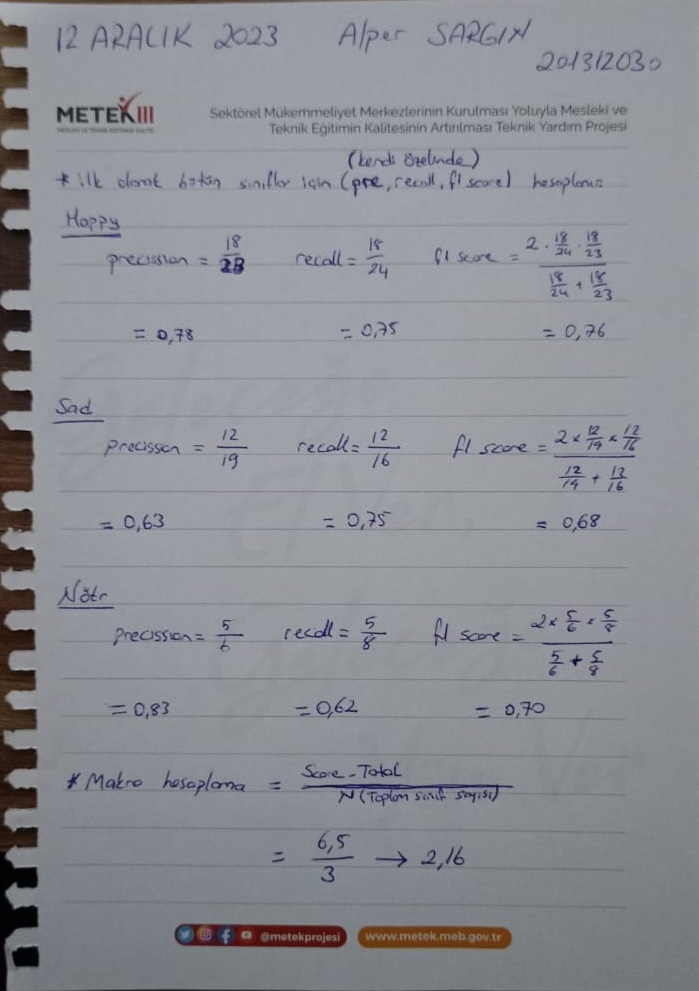 12 ARALIK 2023 Alper SARGIN
201312030
METEK III
MESLEKİ VE TEKNİK EĞİTİMİN KALİTESİ
Sektörel Mükemmeliyet Merkezlerinin Kurulması Yoluyla Mesleki ve
Teknik Eğitimin Kalitesinin Artırılması Teknik Yardım Projesi
(kendi özelinde)
* ilk olarak bütün sınıflar için (pre, recall, f1 score) hesaplanır
Happy
precission = 18/23 recall = 18/24 f1 score = 2 · 18/24 · 18/23 / 18/24 + 18/23
= 0,78 = 0,75 = 0,76
Sad
precission = 12/19 recall = 12/16 f1 score = 2 x 12/19 x 12/16 / 12/19 + 12/16
= 0,63 = 0,75 = 0,68
Nötr
precission = 5/6 recall = 5/8 f1 score = 2 x 5/6 x 5/8 / 5/6 + 5/8
= 0,83 = 0,62 = 0,70
* Makro hesaplama = Score-Total / N (Toplam sınıf sayısı)
= 6,5/3 → 2,16
@metekprojesi www.metek.meb.gov.tr